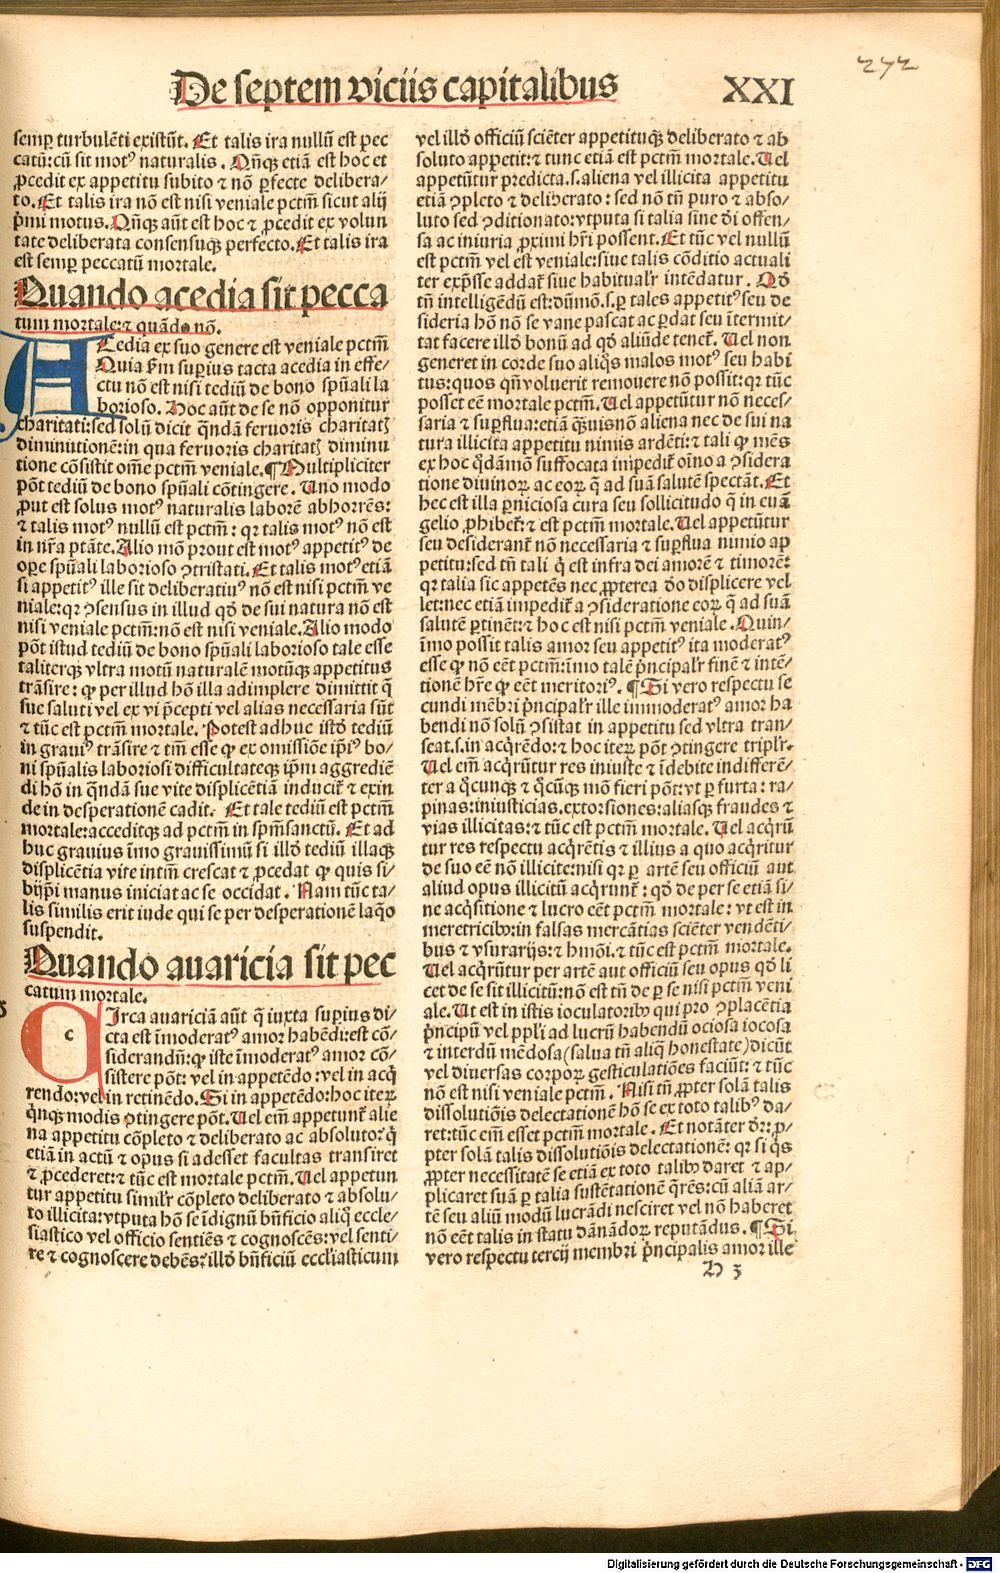 272
De septem viciis capitalibus XXI
semꝑ turbulēti existūt. Et talis ira nullū est pec
catū: cū sit motꝰ naturalis. Qn̄qꝫ etiā est hoc et
ꝓcedit ex appetitu subito ⁊ nō ꝑfecte delibera/
to. Et talis ira nō est nisi veniale pctm̄ sicut alij
p̄mi motus. Qn̄qꝫ aūt est hoc ⁊ ꝓcedit ex volun
tate deliberata consensuqꝫ perfecto. Et talis ira
est semꝑ peccatū mortale.
Quando acedia sit pecca
tum mortale: ⁊ quādo nō.
ACedia ex suo genere est veniale pctm̄
Quia ẜm suꝑius tacta acedia in effe/
ctu nō est nisi tediū de bono spūali la
borioso. Hoc aūt de se nō opponitur
charitati: sed solū dicit qūdā feruoris charitatꝭ
diminutionē: in qua feruoris charitatꝭ diminu
tione cōsistit om̄e pctm̄ veniale. ¶ Multipliciter
pōt tediū de bono spūali cōtingere. Uno modo
ꝓut est solus motꝰ naturalis laborē abhorrēs:
⁊ talis motꝰ nullū est pctm̄: qꝛ talis motꝰ nō est
in nr̄a ptāte. Alio mō prout est motꝰ appetitꝰ de
oꝑe spūali laborioso ꝯtristati. Et talis motꝰ etiā
si appetitꝰ ille sit deliberatiuꝰ nō est nisi pctm̄ ve
niale: qꝛ ꝯsensus in illud qd̄ de sui natura nō est
nisi veniale pctm̄: nō est nisi veniale. Alio modo
pōt istud tediū de bono spūali laborioso tale esse
taliterqꝫ vltra motū naturalē motūqꝫ appetitus
trāsire: ꝙ per illud hō illa adimplere dimittit q̄
sue saluti vel ex vi p̄cepti vel alias necessaria sūt
⁊ tūc est pctm̄ mortale. Potest adhuc istd̄ tediū
in grauiꝰ trāsire ⁊ tm̄ esse ꝙ ex omissiōe ip̄iꝰ bo/
ni spūalis laboriosi difficultateqꝫ ip̄m aggrediē
di hō in qn̄dā sue vite displicētiā inducit̄ ⁊ exin
de in desperationē cadit. Et tale tediū est pctm̄
mortale: acceditqꝫ ad pctm̄ in spm̄sanctū. Et ad
huc grauius īmo grauissimū si illd̄ tediū illaqꝫ
displicētia vite intm̄ crescat ⁊ ꝓcedat ꝙ quis si-
bijp̄i manus iniciat ac se occidat. Nam tūc ta/
lis similis erit iude qui se per desperationē laq̄o
suspendit.
Quando auaricia sit pec
catum mortale.
CIrca auariciā aūt q̄ iuxta suꝑius di/
cta est īmoderatꝰ amor habēdi: est cō/
siderandū: ꝙ iste īmoderatꝰ amor cō/
sistere pōt: vel in appetēdo: vel in acq̄
rendo: vel in retinēdo. Si in appetēdo: hoc iteꝝ
q̄nqꝫ modis ꝯtingere pōt. Uel em̄ appetunt̄ alie
na appetitu cōpleto ⁊ deliberato ac absoluto: q̄
etiā in actū ⁊ opus si adesset facultas transiret
⁊ ꝓcederet: ⁊ tūc est mortale pctm̄. Uel appetun
tur appetitu simil'r cōpleto deliberato ⁊ absolu/
to illicita: vtputa hō se īdignū bn̄ficio aliq̄ eccle/
siastico vel officio sentiēs ⁊ cognoscēs: vel senti/
re ⁊ cognoscere debēs: illd̄ bn̄ficiū eccl'iasticum
vel illd̄ officiū sciēter appetituqꝫ deliberato ⁊ ab
soluto appetit: ⁊ tunc etiā est pctm̄ mortale. Uel
appetūtur predicta. s. aliena vel illicita appetitu
etiā ꝯpleto ⁊ deliberato: sed nō tn̄ puro ⁊ abso/
luto sed ꝯditionato: vtputa si talia sine dī offen/
sa ac iniuria ꝓximi hr̄i possent. Et tūc vel nullū
est pctm̄ vel est veniale: siue talis cōditio actuali
ter exp̄sse addat̄ siue habitual'r intēdatur. Qd̄
tn̄ intelligēdū est: dūmō. s. ꝑ tales appetitꝰ seu de
sideria hō nō se vane pascat ac ꝑdat seu ītermit/
tat facere illd̄ bonū ad qd̄ aliūde tenet̄. Uel non
generet in corde suo aliq̄s malos motꝰ seu habi
tus: quos qn̄ voluerit remouere nō possit: qꝛ tūc
posset eē mortale pctm̄. Uel appetūtur nō neces/
saria ⁊ suꝑflua: etiā q̄uisnō aliena nec de sui na
tura illicita appetitu nimis ardēti: ⁊ tali ꝙ mēs
ex hoc q̄dāmō suffocata impedit̄ oīno a ꝯsidera
tione diuinoꝝ ac eoꝝ q̄ ad suā salutē spectāt. Et
hec est illa ꝑniciosa cura seu sollicitudo q̄ in euā
gelio ꝓhibet̄: ⁊ est pctm̄ mortale. Uel appetūtur
seu desiderant̄ nō necessaria ⁊ suꝑflua nimio ap
petitu: sed tn̄ tali q̄ est infra dei amorē ⁊ timorē:
qꝛ talia sic appetēs nec ꝓpterea dō displicere vel
let: nec etiā impedit̄ a ꝯsideratione eoꝝ q̄ ad suā
salutē ꝑtinēt: ⁊ hoc est nisi pctm̄ veniale. Quin/
īmo possit talis amor seu appetitꝰ ita moderatꝰ
esse ꝙ nō eēt pctm̄: īmo talē p̄ncipal'r finē ⁊ intē/
tionē hr̄e ꝙ eēt meritoriꝰ. ¶ Si vero respectu se
cundi mēbri p̄ncipal'r ille immoderatꝰ amor ha
bendi nō solū ꝯsistat in appetitu sed vltra tran/
seat. s. in acq̄rēdo: ⁊ hoc iteꝝ pōt ꝯtingere tripl'r.
Uel em̄ acq̄rūtur res iniuste ⁊ īdebite indifferē/
ter a q̄cunqꝫ ⁊ q̄cūqꝫ mō fieri pōt: vt ꝑ furta: ra/
pinas: iniusticias, extorsiones: aliasqꝫ fraudes ⁊
vias illicitas: ⁊ tūc est pctm̄ mortale. Uel acq̄rū
tur res respectu acq̄rētis ⁊ illius a quo acq̄ritur
de suo eē nō illicite: nisi qꝛ ꝑ artē seu officiū aut
aliud opus illicitū acq̄runt̄: qd̄ de per se etiā si/
ne acq̄sitione ⁊ lucro eēt pctm̄ mortale: vt est in
meretricibꝰ: in falsas mercātias sciēter vendēti/
bus ⁊ vsurarijs: ⁊ hmōi. ⁊ tūc est pctm̄ mortale.
Uel acq̄rūtur per artē aut officiū seu opus qd̄ li
cet de se sit illicitū: nō est tn̄ de ꝑ se nisi pctm̄ veni
ale. Ut est in istis ioculatoribꝰ qui pro ꝯplacētia
p̄ncipū vel ppl'i ad lucrū habendū ociosa iocosa
⁊ interdū mēdosa (salua tn̄ aliq̄ honestate) dicūt
vel diuersas corpoꝝ gesticulatiōes faciūt: ⁊ tūc
nō est nisi veniale pctm̄. Nisi tn̄ ꝓpter solā talis
dissolutiōis delectationē hō se ex toto talibꝰ da/
ret: tūc em̄ esset pctm̄ mortale. Et notāter dr̄: ꝓ/
pter solā talis dissolutiōis delectationē: qꝛ si q̄s
ꝓpter necessitatē se etiā ex toto talibꝰ daret ⁊ ap/
plicaret suā ꝑ talia sustētationē q̄rēs: cū aliā ar/
tē seu aliū modū lucrādi nesciret vel nō haberet
nō eēt talis in statu dānādoꝝ reputādus. ¶ Si
vero respectu tercij membri p̄ncipalis amor ille
H 3
Digitalisierung gefördert durch die Deutsche Forschungsgemeinschaft - DFG